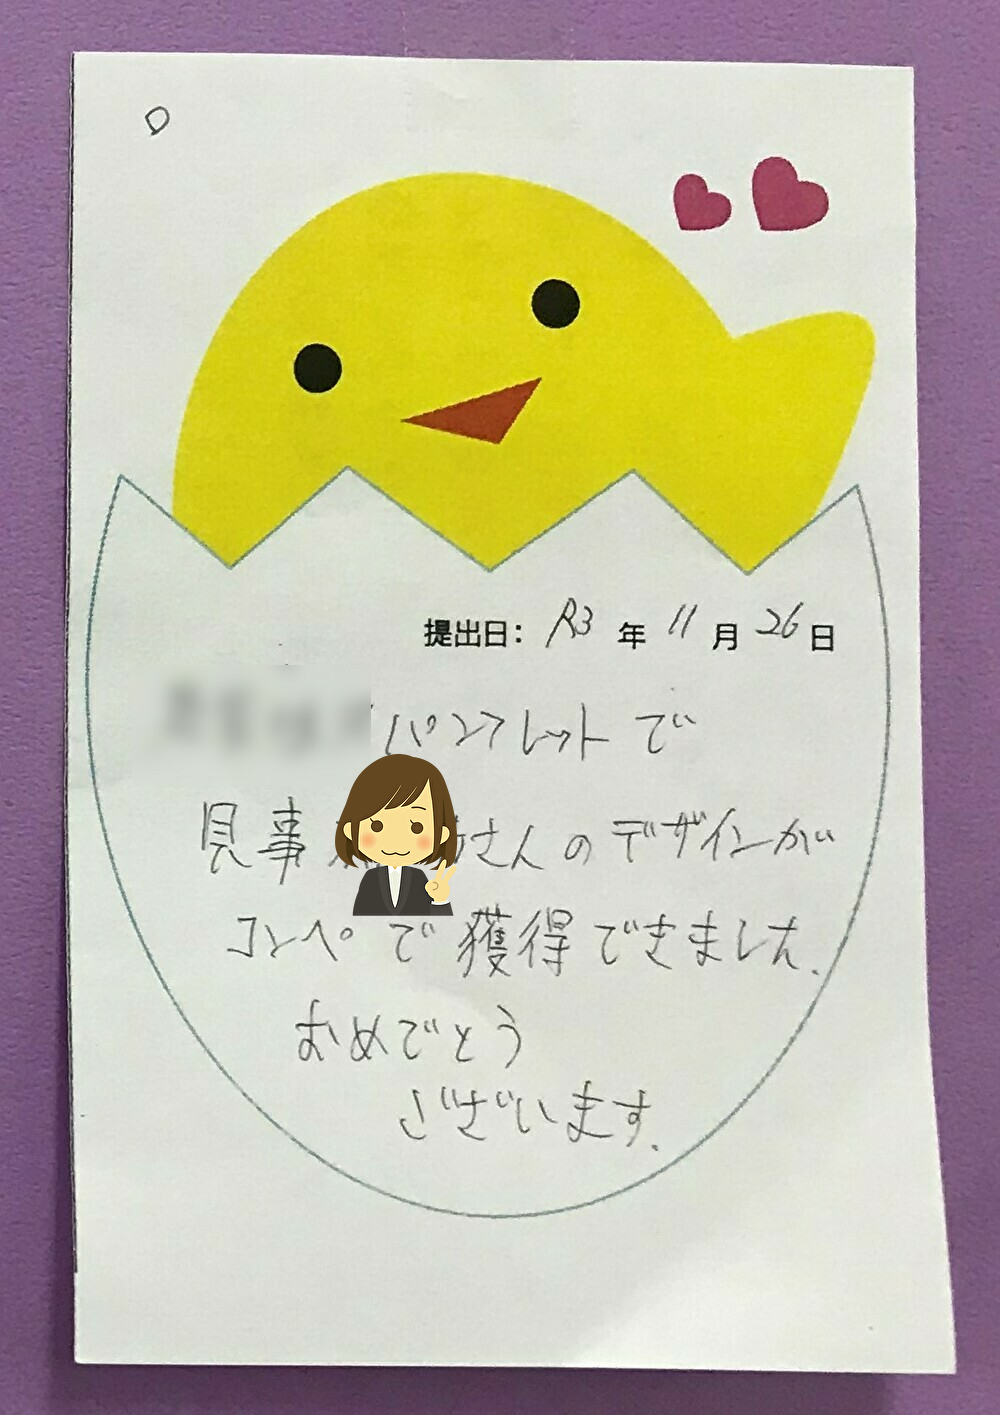 提出日: R3 年 11 月 26 日
パンフレットで
見事 さんのデザインが
コンペで獲得できました.
おめでとう
ございます.